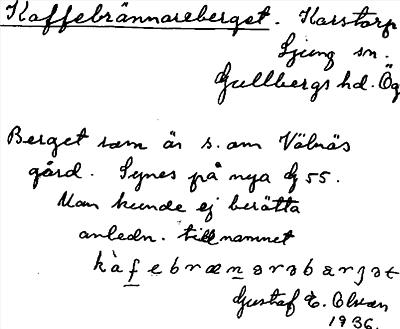 Kaffebrännareberget. Karstorp
Ljung sn.
Gullbergs hd. Ög
Berget som är s. om Välnäs
gård. Synes på nya G 55.
Man kunde ej berätta
anledn. till namnet
kàfebrænarəbarjət
Gustaf E. Olson
1936.